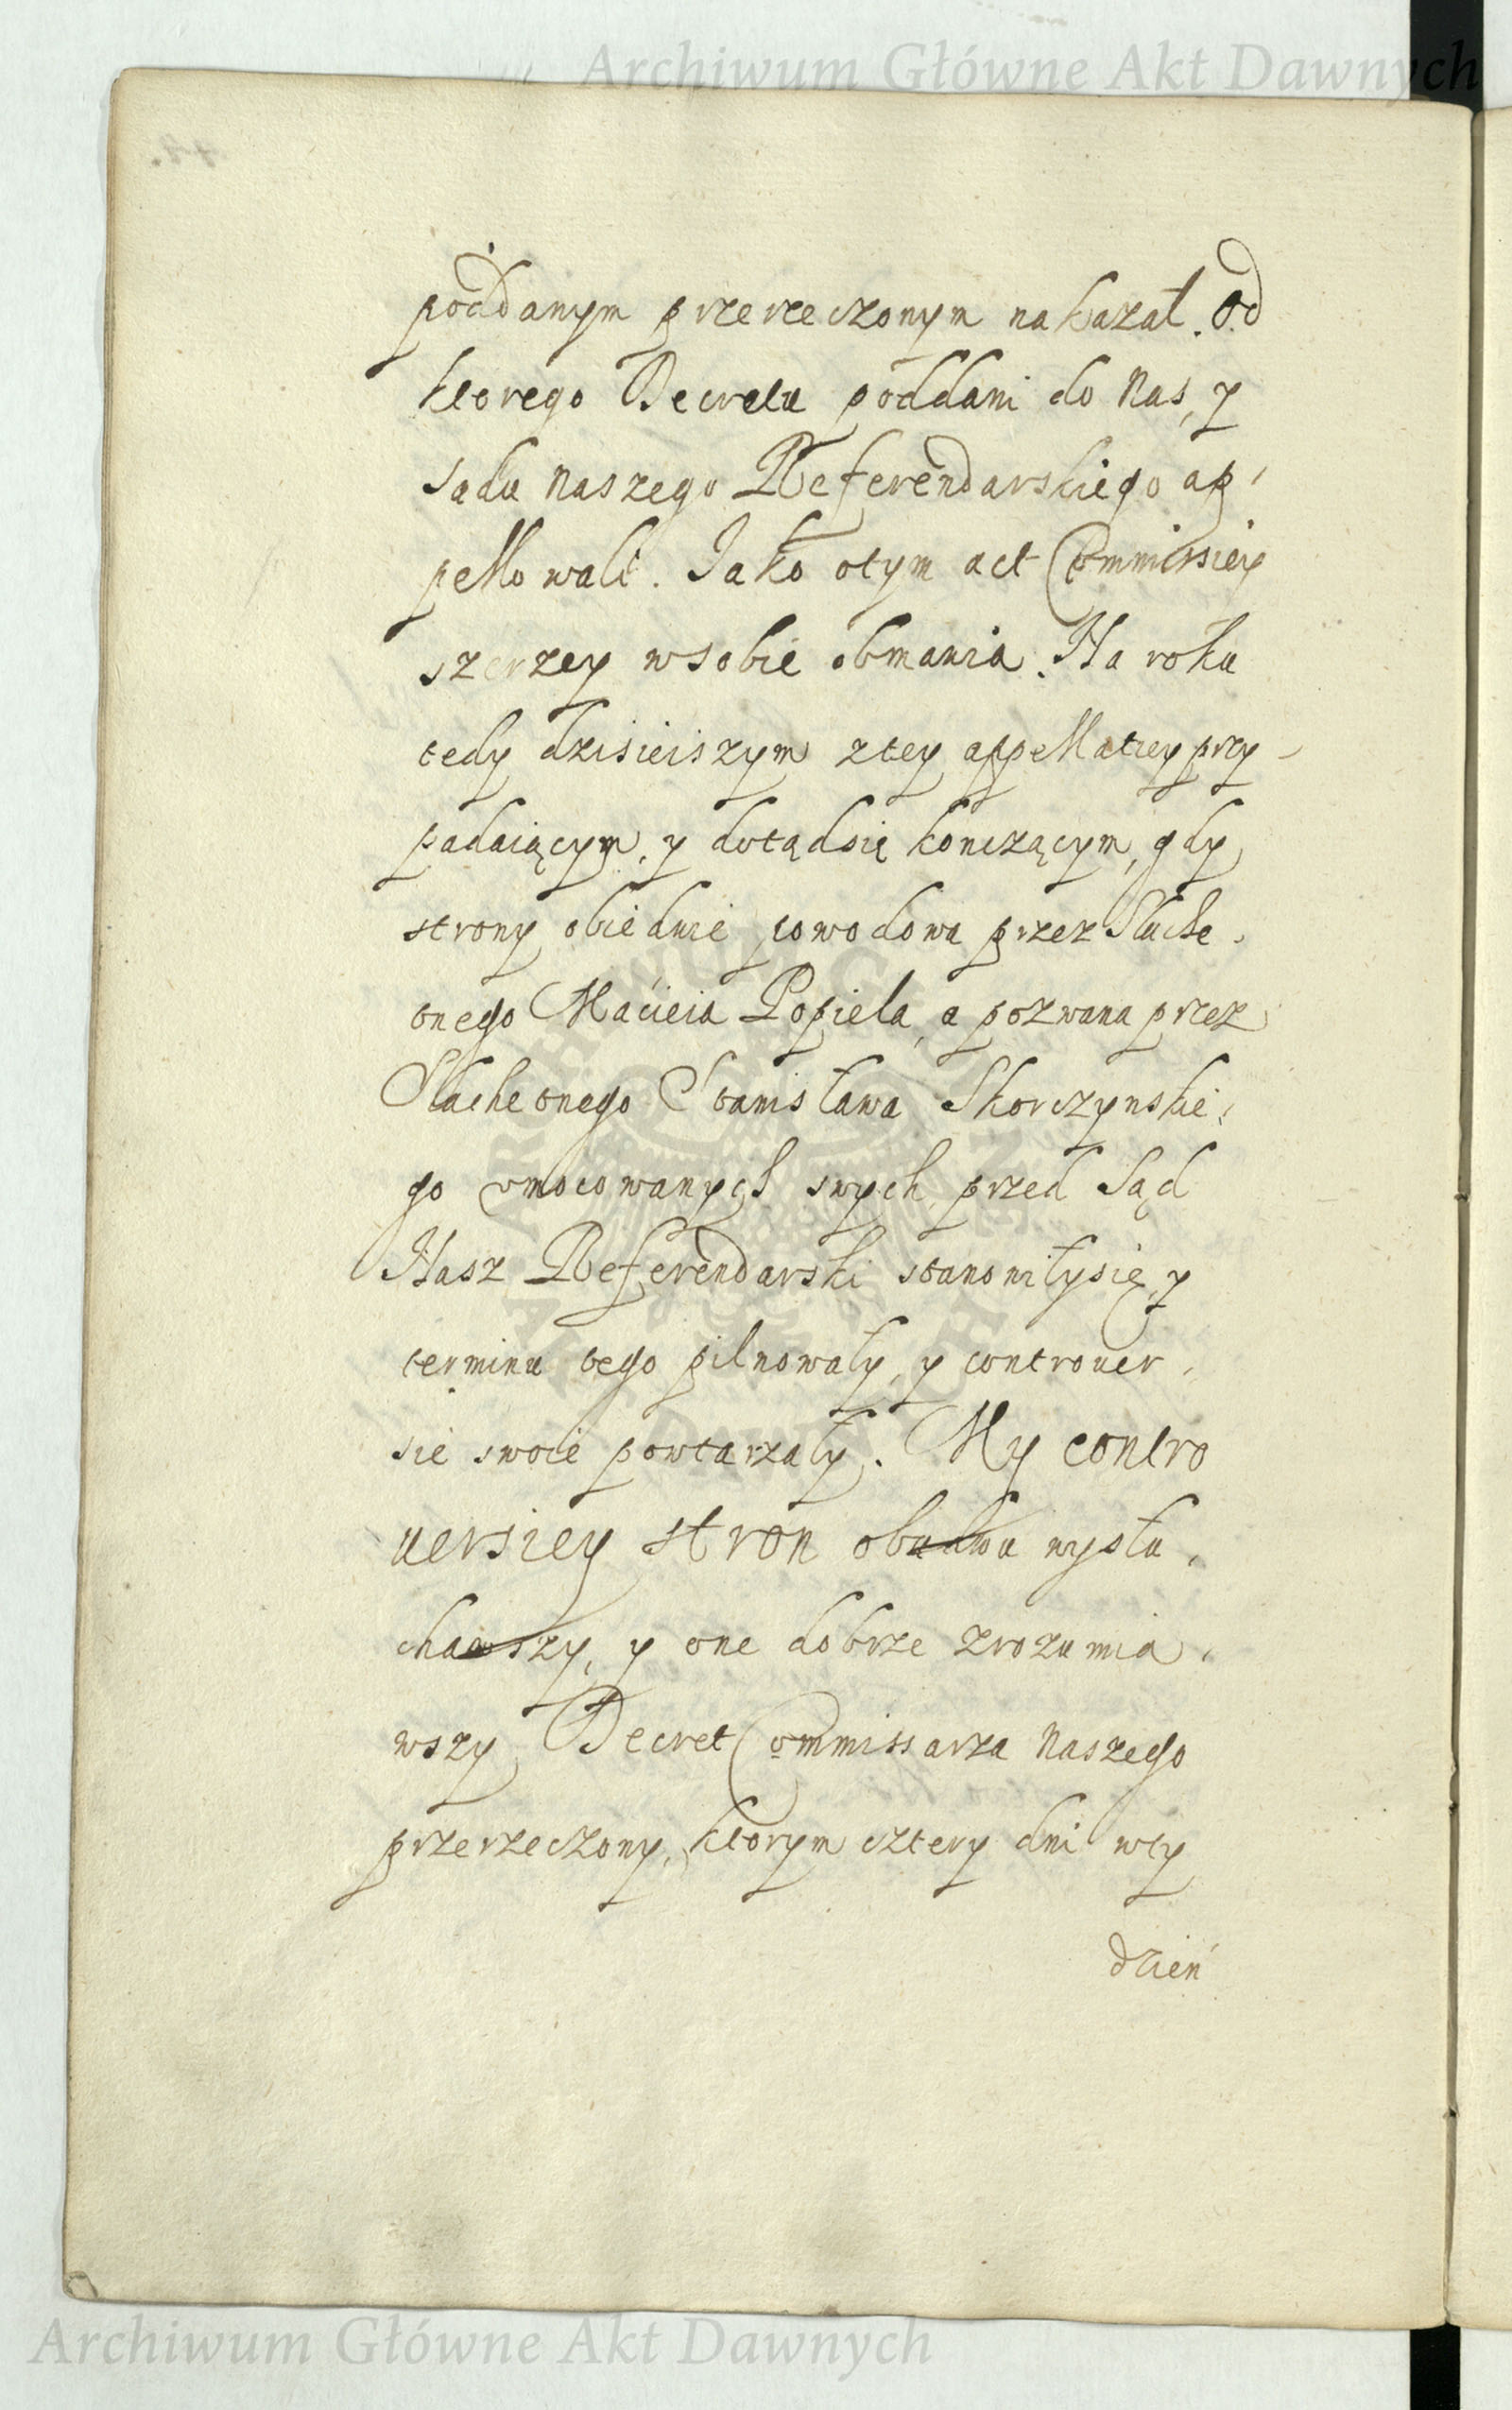 Archiwum Główne Akt Dawnych
poddanym przerzeczonym nakazał. Od
ktorego Decretu poddani do Nas, y
sadu Naszego Referendarskiego ap,
pellowali. Jako otym act Commissiey
szerzey wsobie obmawia. Na roku
tedy dzisieiszym ztey appellatiey przy-
padaiącym, y dotądsię konczącym, gdy
strony obiedwie powodowa przez Slache,
tnego Macieia Popiela, a pozwana przez
Slachetnego Stanisława Skorczynskie,
go umocowanych swych przed Sąd
Nasz Referendarski stanowiłysię, y
terminu tego pilnowały, y controuer,
sie swoie powtarzały. My contro
uersiey stron obudwu wysłu,
chawszy, y one dobrze zrozumia,
wszy Decret Commissarza Naszego
przerzeczony, ktorym cztery dni wty
dzień
Archiwum Główne Akt Dawnych